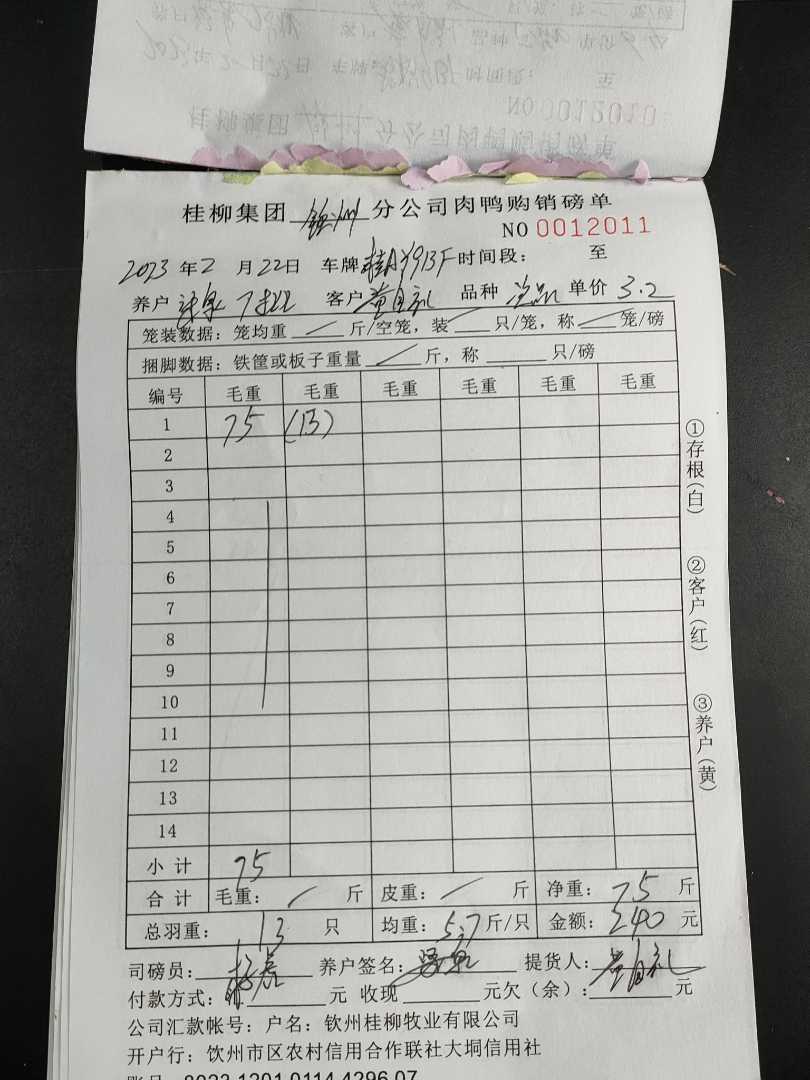 桂柳集团 钦州 分公司肉鸭购销磅单
NO 0012011
2023 年 2 月 22 日 车牌 时间段： 至
养户 客户 黄自礼 品种 单价 3.2
笼装数据：笼均重 / 斤/空笼，装 / 只/笼，称 / 笼/磅
捆脚数据：铁筐或板子重量 / 斤，称 只/磅
编号 毛重 毛重 毛重 毛重 毛重 毛重
1 75 (13)
2
3
4
5
6
7
8
9
10
11
12
13
14
小计 75
合计 毛重： / 斤 皮重： / 斤 净重： 75 斤
总羽重： 13 只 均重： 5.7 斤/只 金额： 240 元
司磅员： 养户签名： 提货人： 黄自礼
付款方式： 元 收现 元欠（余）： 元
公司汇款帐号：户名：钦州桂柳牧业有限公司
开户行：饮州市区农村信用合作联社大垌信用社
①存根（白）
②客户（红）
③养户（黄）